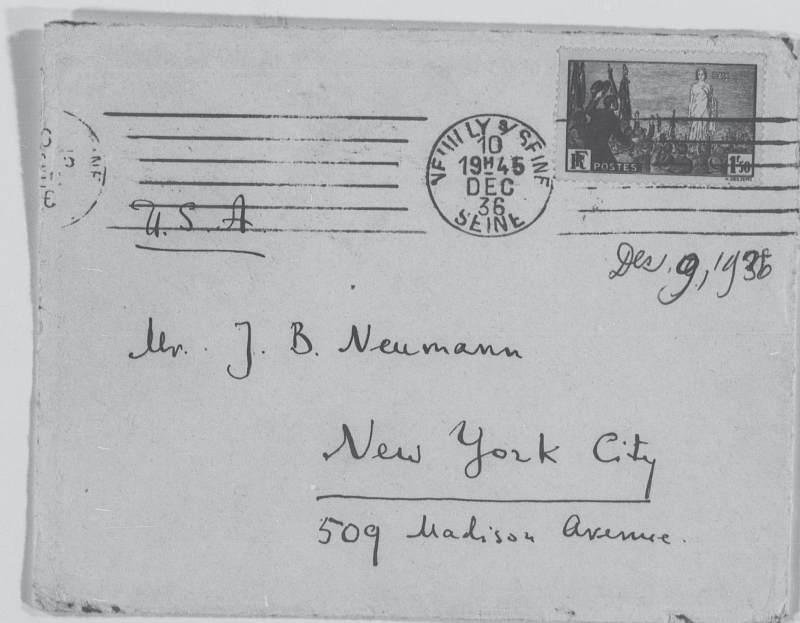 NEUILLY S/ SEINE
10
19H45
DEC
36
SEINE
RF
POSTES
1F50
U.S.A.
Dec. 9, 1936
Mr. J. B. Neumann
New York City
509 Madison Avenue.